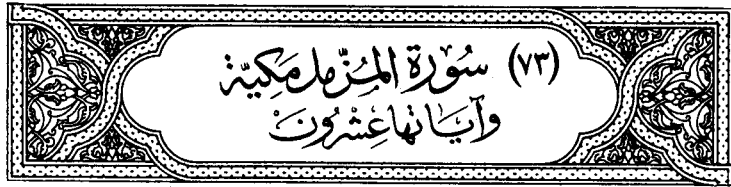 (٧٣) سُورَةُ المُزَّمِّل مَكِيَّة
وَآيَاتُهَا عِشْرُونَ